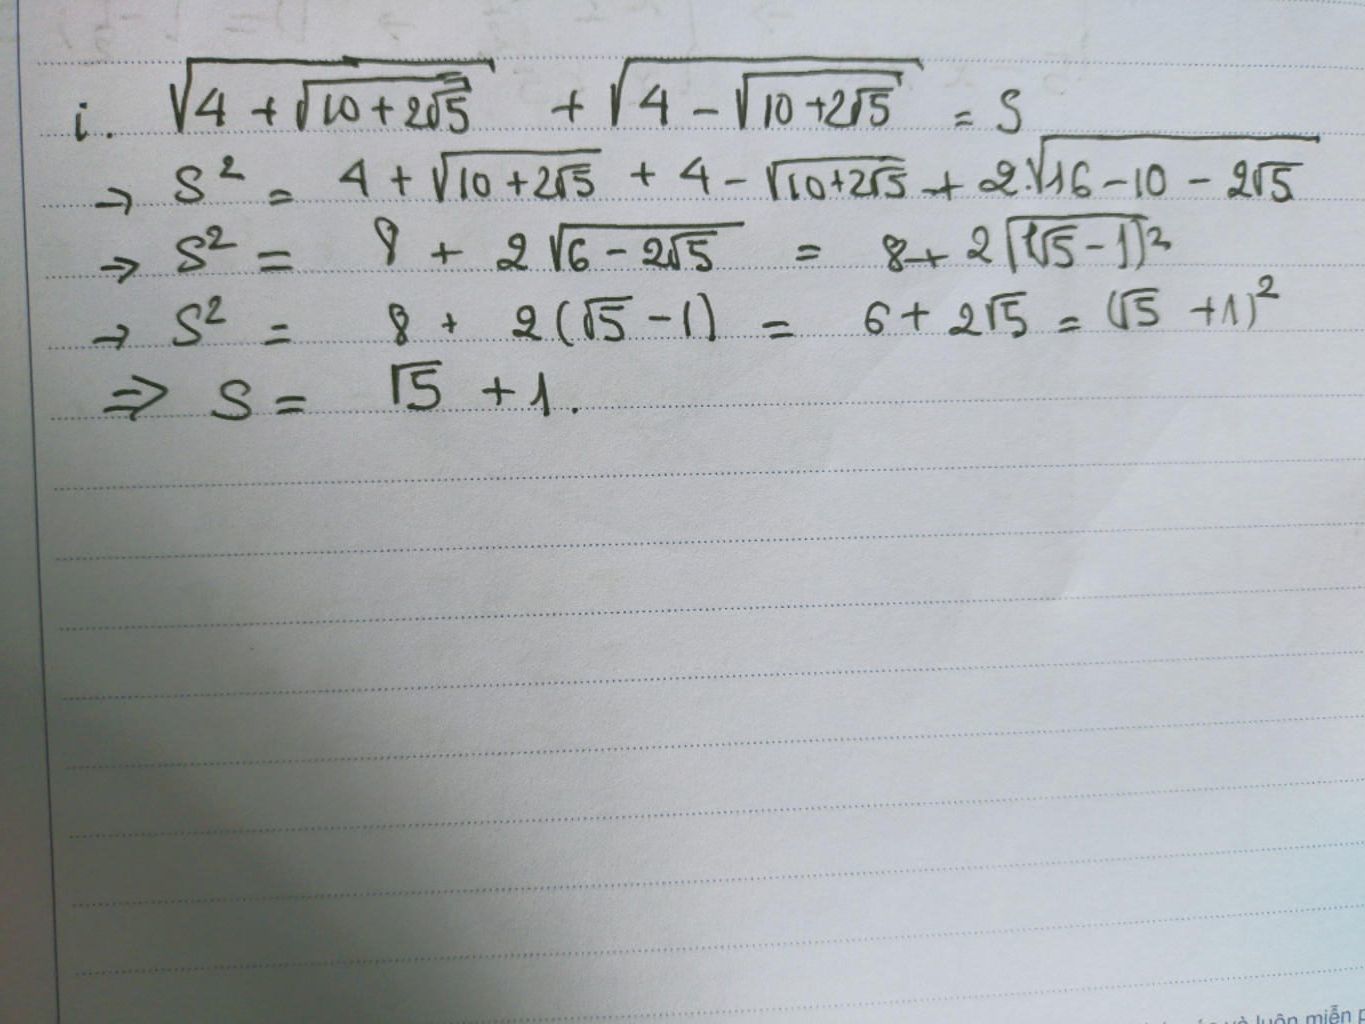 i. √(4 + √(10 + 2√5)) + √(4 - √(10 + 2√5)) = S
→ S² = 4 + √(10 + 2√5) + 4 - √(10 + 2√5) + 2.√(16 - 10 - 2√5)
→ S² = 8 + 2√(6 - 2√5) = 8 + 2√((√5 - 1)²)
→ S² = 8 + 2(√5 - 1) = 6 + 2√5 = (√5 + 1)²
⇒ S = √5 + 1.
và luôn miễn